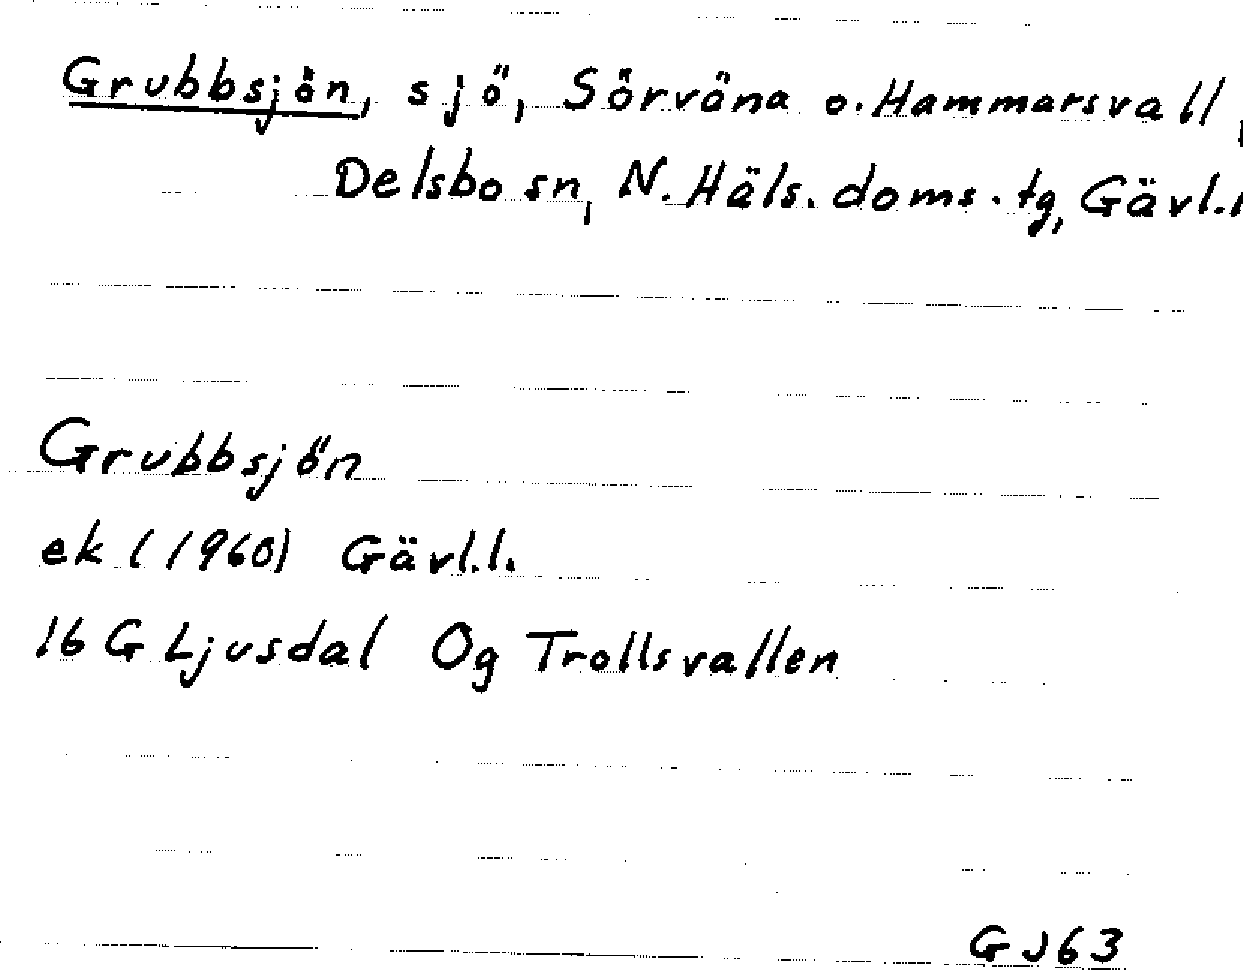 Grubbsjön, sjö, Sörväna o. Hammarsvall,
Delsbo sn, N. Häls. doms. tg, Gävl.l
Grubbsjön
ek (1960) Gävl.l.
16 G Ljusdal Og Trollsvallen
GJ63